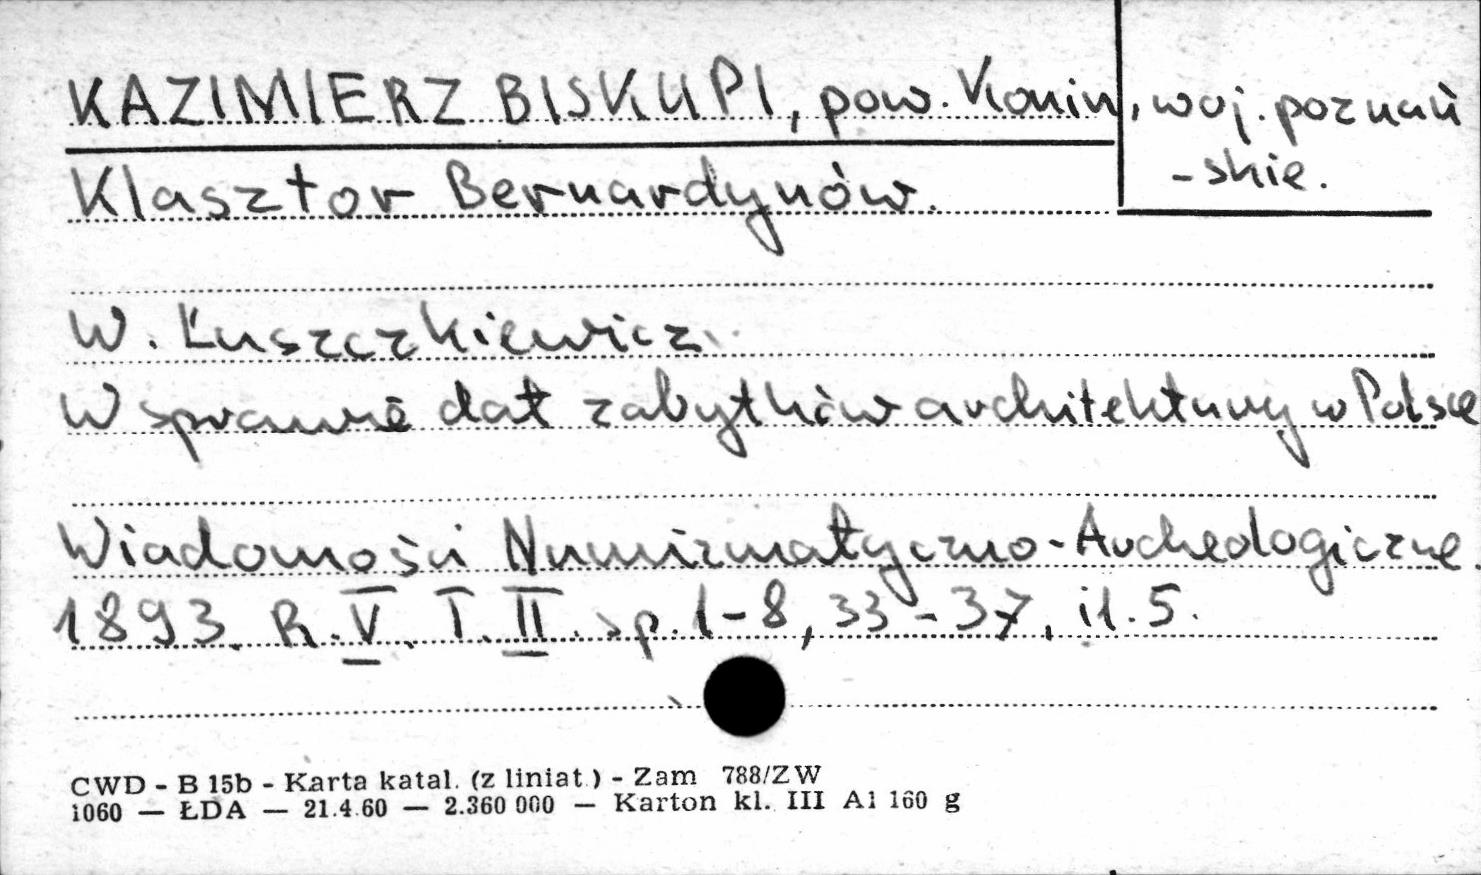 KAZIMIERZ BISKUPI, pow. Konin, woj. poznań
-skie.
Klasztor Bernardynów.
W. Łuszczkiewicz.
W sprawie dat zabytków architektury w Polsce
Wiadomości Numizmatyczno-Archeologiczne.
1893. R. V. T. II. sp. 1-8, 33-37, il. 5.
CWD - B 15b - Karta katal. (z liniat.) - Zam 788/ZW
1060 — ŁDA — 21.4.60 — 2.360 000 — Karton kl. III A1 160 g